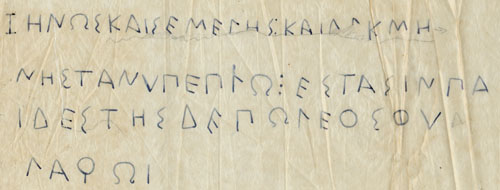 ΖΗΝΩΣΚΑΙΣΕΜΕΛΗΣ:ΚΑΙΑΛΚΜΗ-
ΝΗΣΤΑΝΥΠΕΠΛΩ⋮ΕΣΤΑΣΙΝΠΑ
ΙΔΕΣΤΗΣΔΕΠΩΛΕΟΣΦΥ
ΛΑϘΩΙ